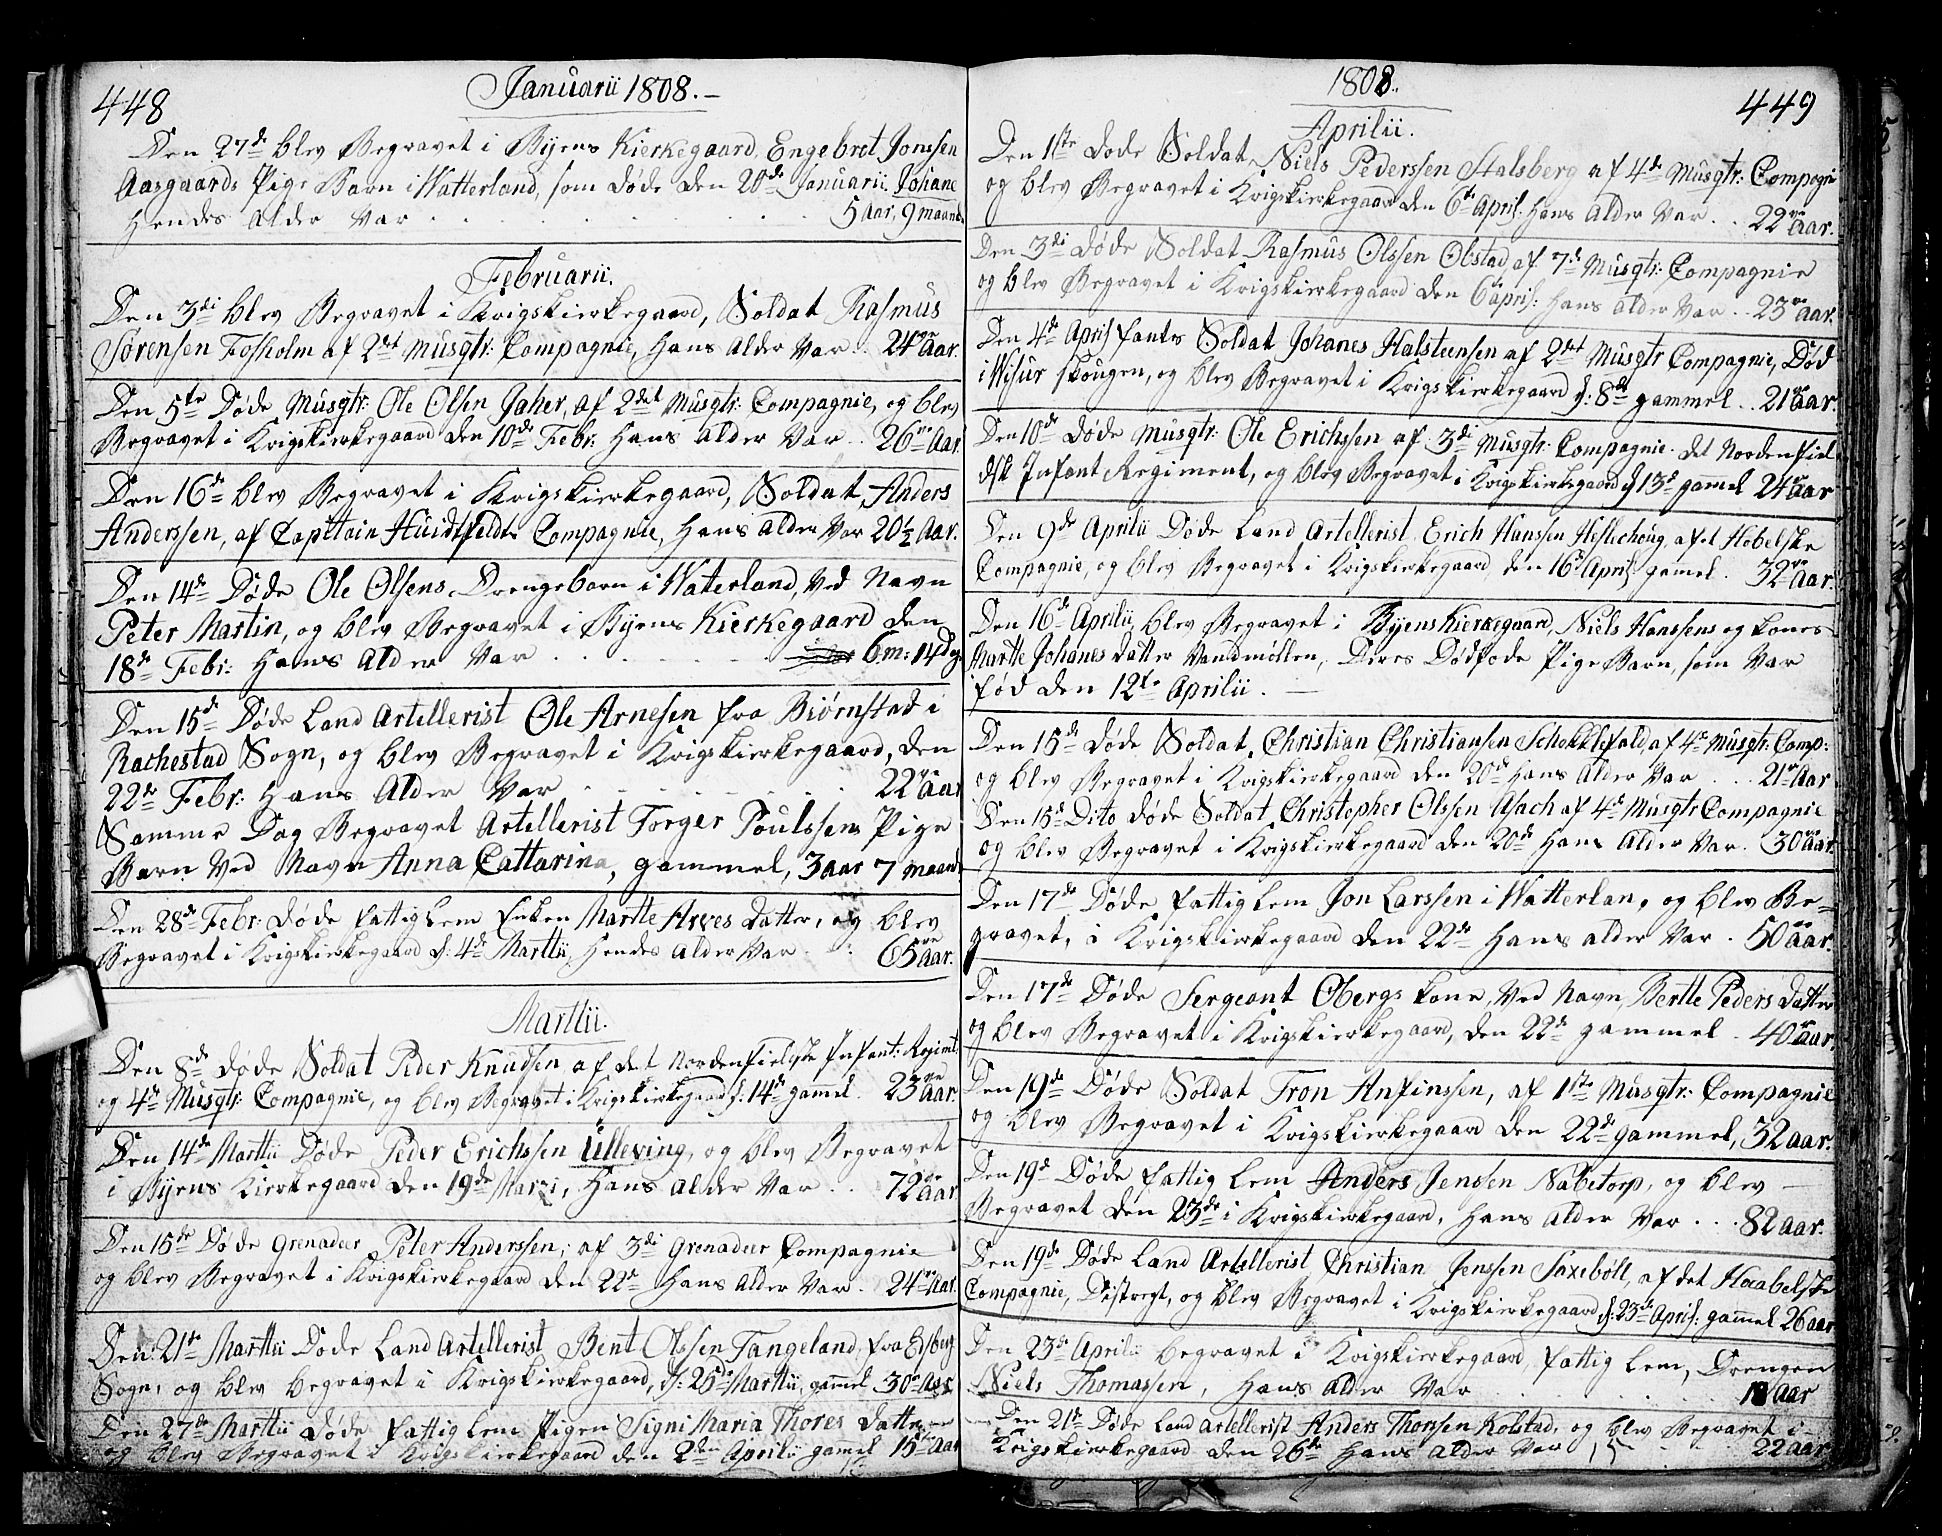 448
Januarii 1808.
Den 27de blev Begravet i Byens Kierkegaard, Engebret Jonssen
Aasgaards Pige Barn i Watterland, som døde den 20de Januarii, Johane
Hendes Alder Var 5 aar, 9 maand
Februarii.
Den 3di blev Begravet i Krigskierkegaard, Soldat Rasmus
Sørensen Fosholm af 2det Musqtr: Compagnie, Hans Alder Var 24re Aar.
Den 5te Døde Musqtr: Ole Olsen Jaher, af 2det Musqtr: Compagnie, og blev
Begravet i Krigskierkegaard den 10de Febr: Hans Alder Var 26re Aar
Den 16de blev Begravet i Krigskierkegaard, Soldat, Anders
Anderssen, af Capittain Huidtfeldts Compagnie, Hans Alder Var 20½ Aar.
Den 14de Døde Ole Olsens Drengebarn i Waterland, Ved Navn
Peter Martin, og blev Begravet i Byens Kierkegaard den
18de Febr: Hans Alder Var 6 m: 14 Dage
Den 15de Døde Land Artellerist Ole Arnesen fra Biørnstad i
Rachestad Sogn, og blev Begravet i Krigskierkegaard, den
22de Febr: Hans Alder Var 22re Aar
Samme Dag Begravet Artellerist Torger Poulssens Pige
Barn Ved Navn Anna Cattarina, gammel, 3 aar 7 maand
Den 28de Febr: døde fattiglem Enken Martte Arves Datter, og blev
Begravet i Krigskierkegaard d: 4de Marttii, Hendes Alder Var 65re Aar.
Marttii.
Den 8de døde Soldat Peder Knudsen af det Nordenfielsste Infant: Regimt:
og 4de Musqtr: Compagnie, og blev Begravet i Krigskierkegaard d: 14de gammel 23re Aar.
Den 14de Marttii Døde Peder Erichssen Ulleving, og blev Begravet
i Byens Kierkegaard den 19de Marzi, Hans Alder Var 72re Aar
Den 15de Døde Grenadeer Peter Anderssen, af 3di Grenadeer Compagnie
og blev Begravet i Krigskierkegaard den 22de Hans Alder Var 24re Aar.
Den 21de Marttii Døde Land Artellerist, Bent Olssen Tangeland, fra Edsberg
Sogn, og blev begravet i Krigskierkegaard, d: 26de Marttii, gammel 30re Aar
Den 27de Marttii døde fattig lem Pigen Signi Maria Thores Datter
og blev Begravet i Krigskierkegaard den 2den Aprilii gammel 15 Aar
449
1808.
Aprilii.
Den 1ste døde Soldat, Niels Pederssen Stalsberg af 4de Musqtr: Compagni
og blev Begravet i Krigskierkegaard den 6te April: Hans Alder Var 22re Aar.
Den 3di døde Soldat Rasmus Olssen Obstad, af 7de Musqtr: Compagnie
og blev Begravet i Krigskierkegaard den 6te April: Hans Alder Var 23re Aar.
Den 4de April fantes Soldat Johanes Halsteensen af 2det Musqtr Compagnie, Død
i Wisur skougen, og blev Begravet i Krigskierkegaard d: 8de gammel 21re Aar.
Den 10de døde Musqtr: Ole Erichssen af 3di Musqtr: Compagnie det Nordenfiel
dsk Infant Regiment, og blev Begravet i Krigskierkegaard d 13de gamel 24re Aar
Den 9de Aprilii Døde Land Artellerist, Erich Hanssen Heslechoug, afet Hobelske
Compagnie, og blev Begravet i Krigskierkegaard, den 16de April: gamel 32re Aar.
Den 16de Aprilii, blev Begravet i Byens Kierkegaard, Niels Hanssens og kones
Martte Johanes datter Vandmøllen, Deres Dødføde Pige Barn, som Var
fød den 12te Aprilii.
Den 15de døde Soldat, Christian Christiansen Schokkefald, af 4de Musqtr: Comp:
og blev Begravet i Krigskierkegaard den 20de Hans Alder Var 21re Aar
Den 15de Dito døde Soldat Christopher Olssen Asach af 4de Musqtr Compagnie
og blev Begravet i Krigskierkegaard den 20de Hans Alder Var 30re Aar.
Den 17de Døde fattig lem Jon Larssen i Watterlan, og blev Be-
gravet, i Krigskierkegaard den 22de Hans alder Var 50re Aar.
Den 17de Døde Sergeant Obergs kone, Ved Navn, Bertte Peders Datter
og blev Begravet i Krigskierkegaard, den 22de gammel 40re Aar.
Den 19de Døde Soldat Tron Anfinssen, af 1ste Musqtr: Compagnie
og blev Begravet i Krigskierkegaard den 22de gammel, 32 aar.
Den 19de Døde fattig lem Anders Jenssen Nabetorp, og blev
Begravet den 23de i Krigskierkegaard, Hans Alder Var 82 aar.
Den 19de Døde Land Artellerist Christian Jenssen Saxebøll, af det Haabelske
Compagnie, Distregt, og blev Begravet i Krigskierkegaard d: 23de April: gammel 26 aar
Den 23de Aprilii begravet i Krigskierkegaard, fattig lem, Drengen
Niels Thomassen, Hans Alder Var Aar
Den 21de Døde Land Artellerist Anders Thorssen Kolstad, og blev Begravet i
Krigskierkegaard den 26de Hans Alder Var 22 Aar.